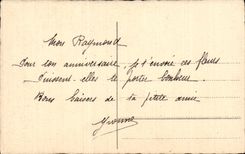 Mon Raymond
Pour ton anniversaire, je t'envoie ces fleurs
Puissent-elles te porter bonheur
Bons baisers de ta petite amie
Yvonne